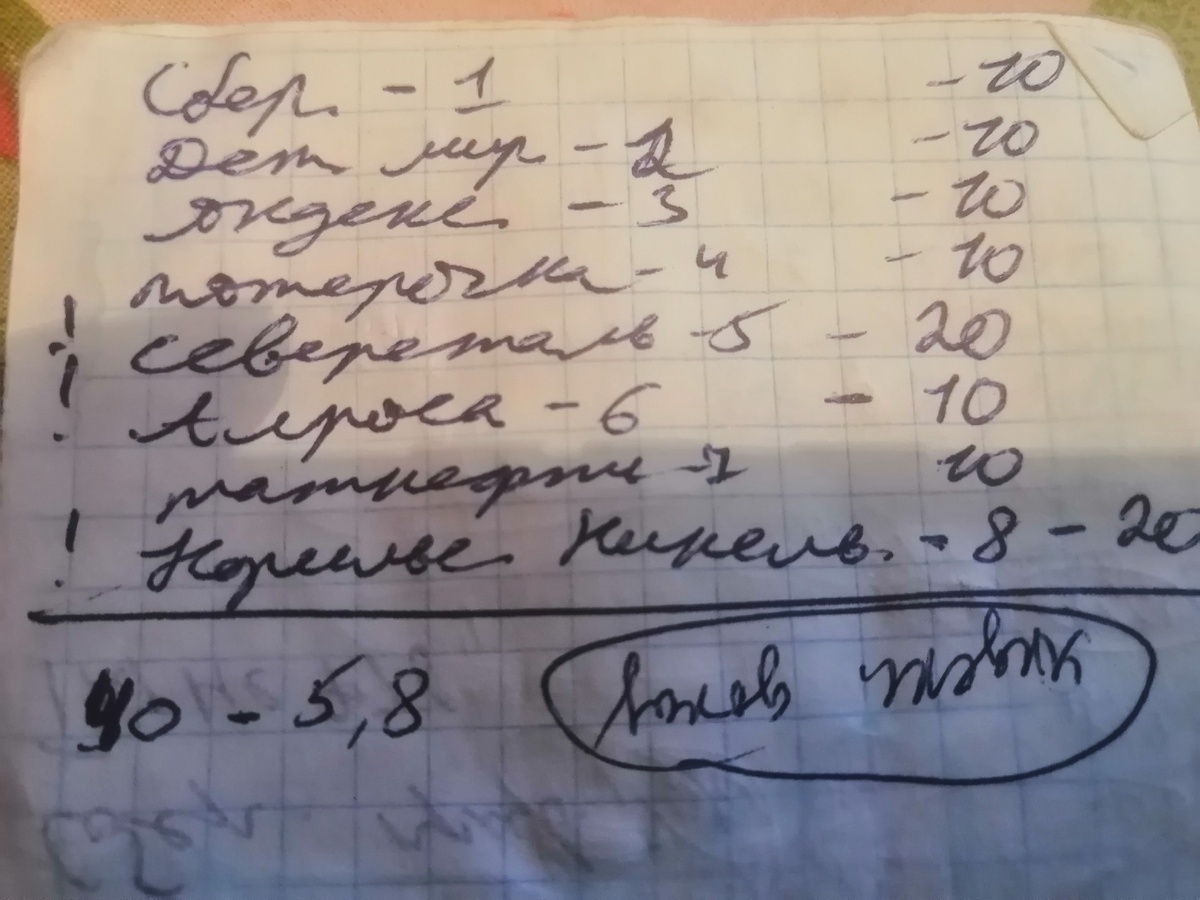 Сбер. - 1 - 10
Дет мир - 2 - 10
яндекс - 3 - 10
пятерочка - 4 - 10
! северсталь - 5 - 20
! Алроса - 6 - 10
татнефть - 7 10
! Норильс. Никель. - 8 - 20
40 - 5,8